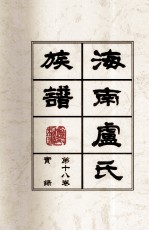 海南盧氏
族譜
第十八卷
實錄